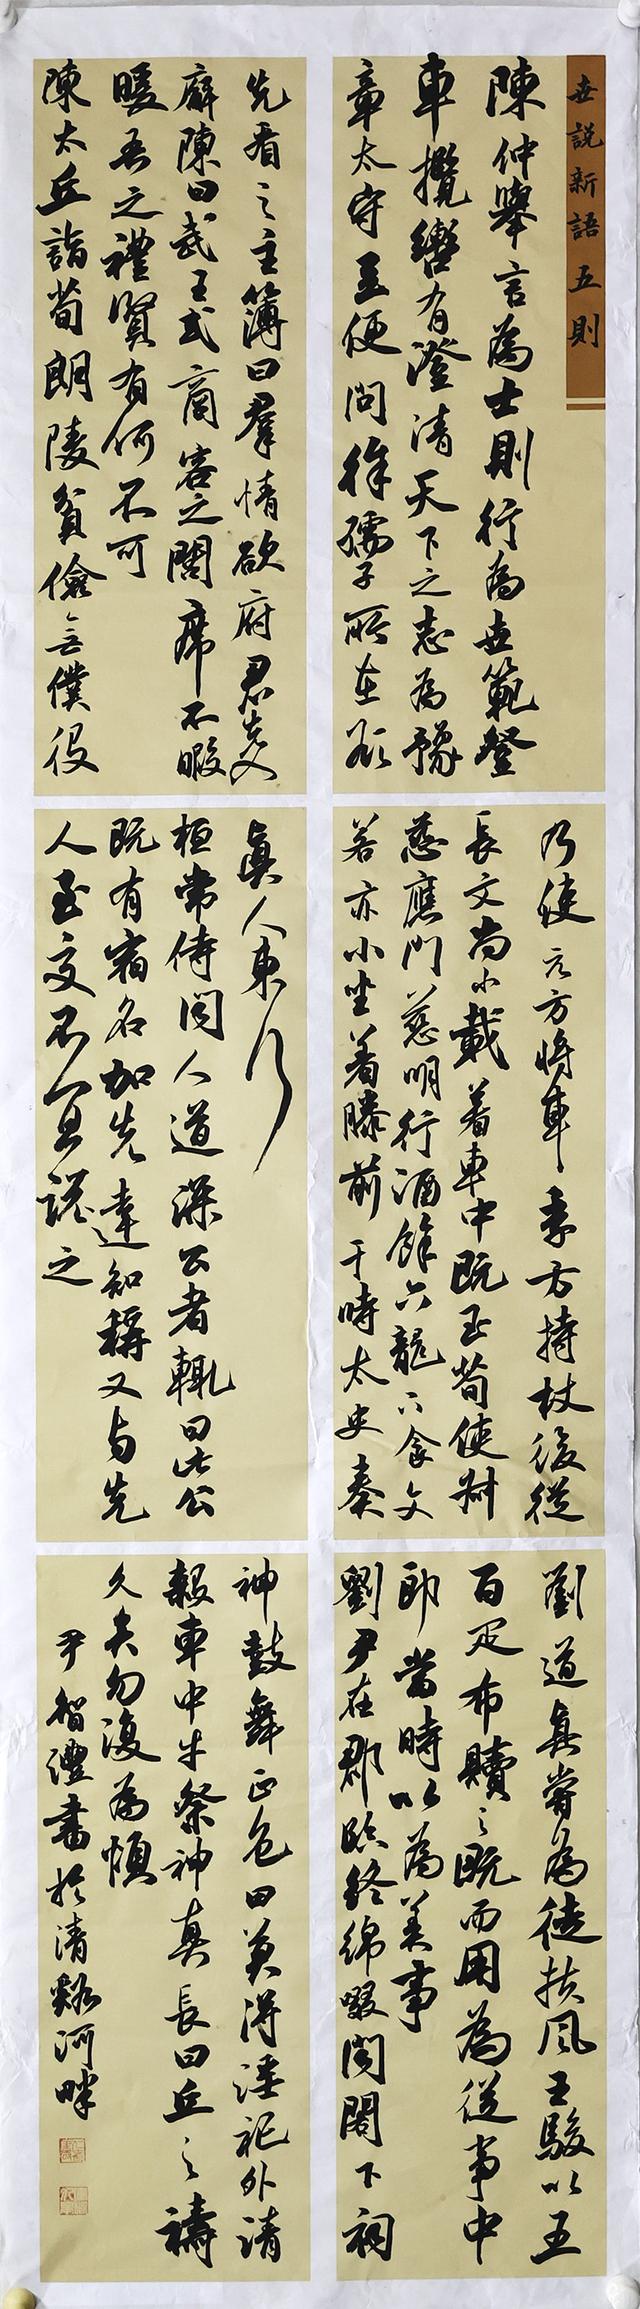 世說新語五則
陳仲舉言為士則行為世範登
車攬轡有澄清天下之志為豫
章太守至便問徐孺子所在欲
先看之主簿曰羣情欲府君先入
廨陳曰武王式商容之閭席不暇
暖吾之禮賢有何不可
陳太丘詣荀朗陵貧儉無僕役
乃使元方將車季方持杖後從
長文尚小載著車中既至荀使叔
慈應門慈明行酒餘六龍下食文
若亦小坐著膝前于時太史奏
真人東行
桓常侍聞人道深公者輒曰此公
既有宿名加先達知稱又與先
人至交不宜說之
劉道真嘗為徒扶風王駿以五
百疋布贖之既而用為從事中
郎當時以為美事
劉尹在郡臨終綿惙聞閣下祠
神鼓舞正色曰莫得淫祀外請
殺車中牛祭神真長曰丘之禱
久矣勿復為煩
尹智澧書於清谿河畔